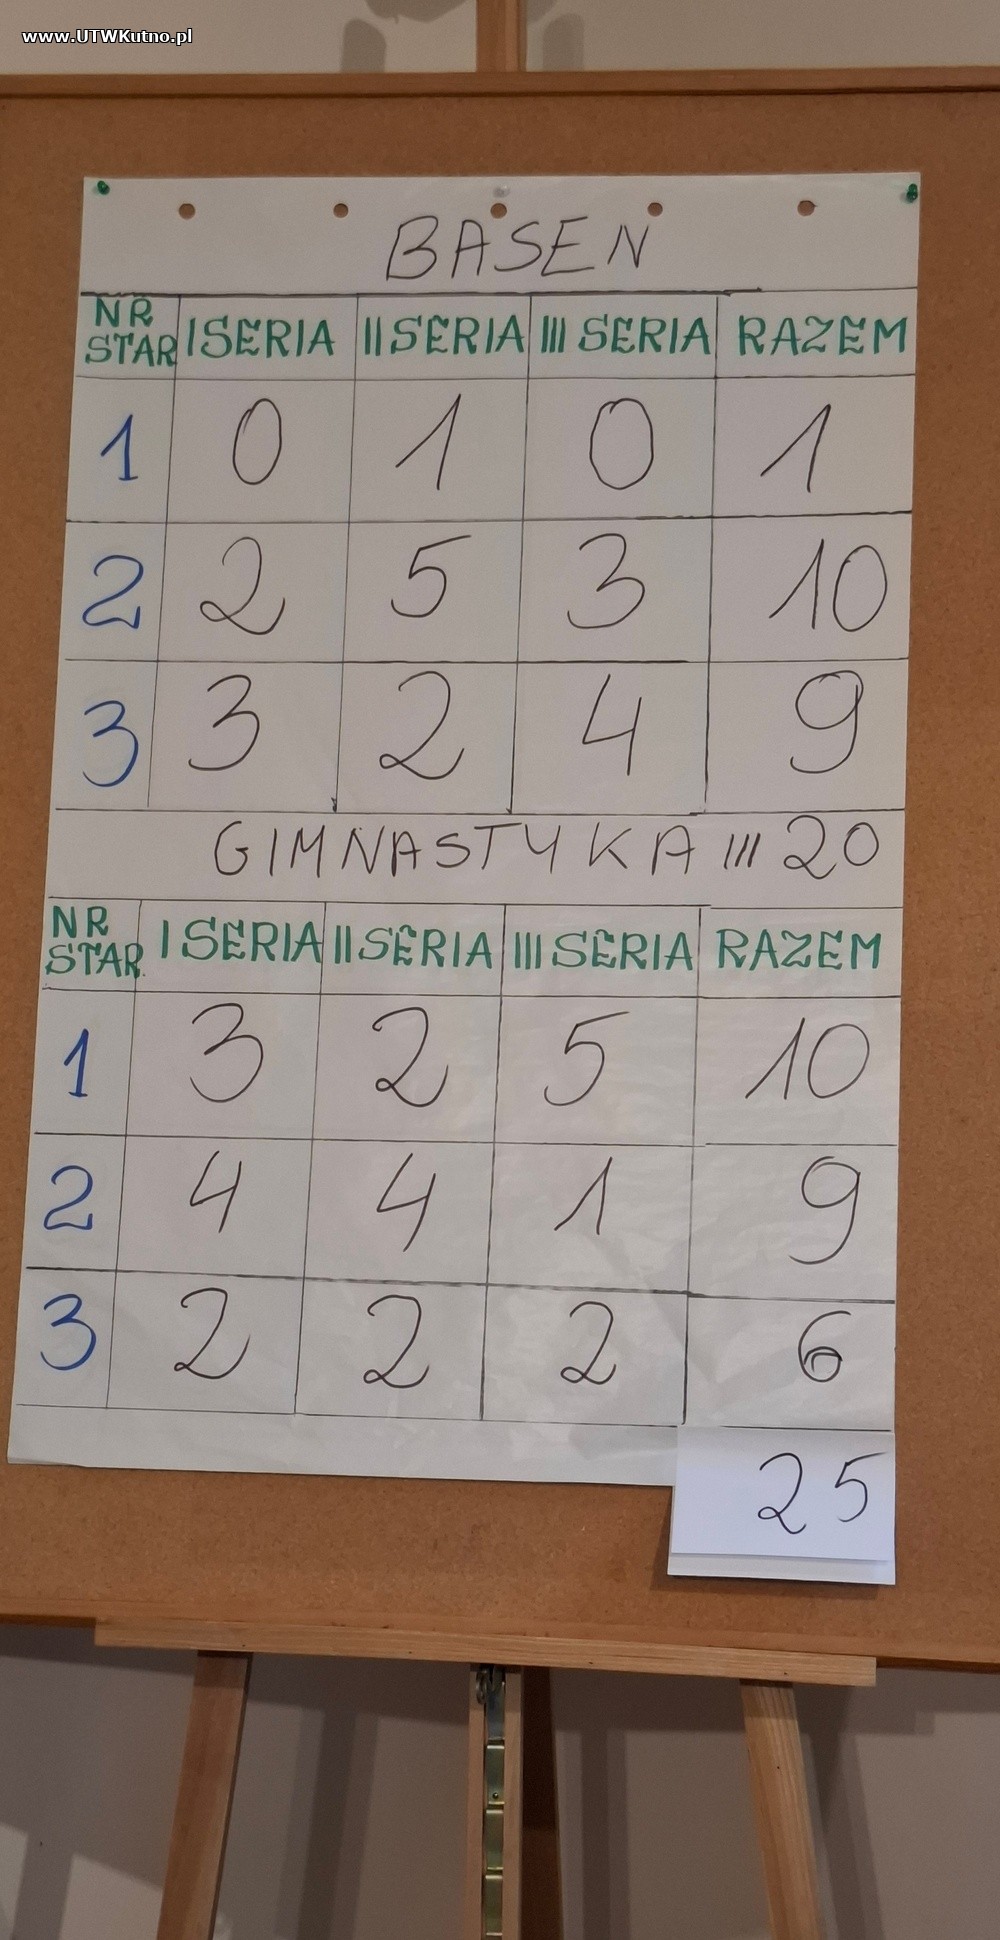 www.UTWKutno.pl
BASEN
NR STAR I SERIA II SERIA III SERIA RAZEM
1 0 1 0 1
2 2 5 3 10
3 3 2 4 9
GIMNASTYKA III 20
NR STAR. I SERIA II SERIA III SERIA RAZEM
1 3 2 5 10
2 4 4 1 9
3 2 2 2 6
25